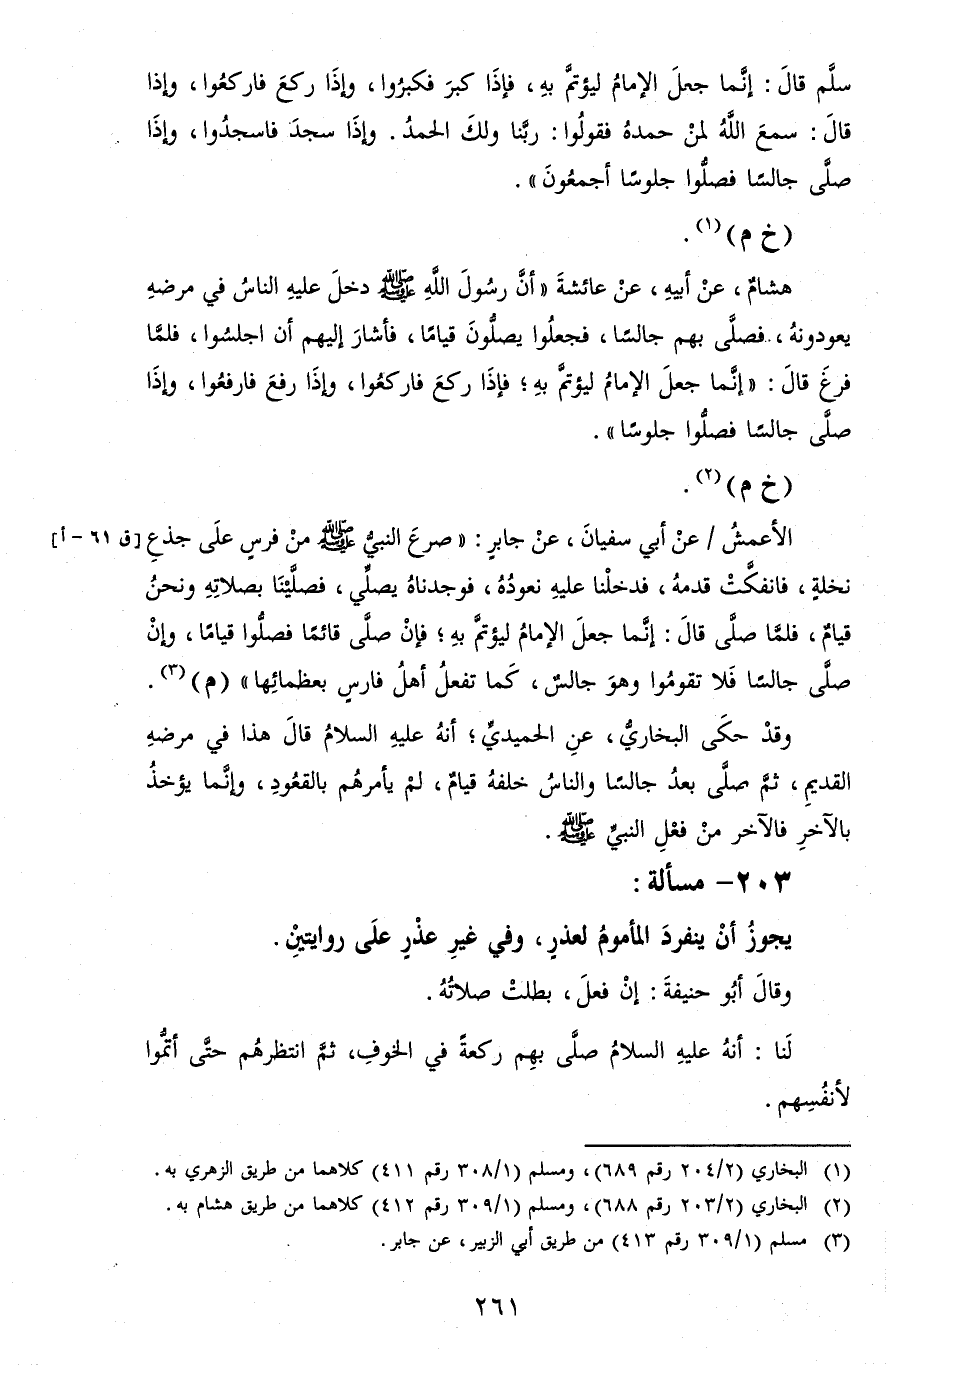 سلَّم قالَ : إنَّما جعلَ الإمامُ ليؤتمَّ بهِ ، فإذَا كبرَ فكبرُوا ، وإذَا ركعَ فاركعُوا ، وإذا
قالَ : سمعَ اللَّهُ لمنْ حمدهُ فقولُوا : ربَّنا ولكَ الحمدُ . وإذَا سجدَ فاسجدُوا ، وإذَا
صلَّى جالسًا فصلُّوا جلوسًا أجمعُونَ » .
(خ م)(١) .
هشامٌ ، عنْ أبيهِ ، عنْ عائشةَ « أنَّ رسُولَ اللَّهِ ﷺ دخلَ عليهِ الناسُ في مرضهِ
يعودونهُ ، فصلَّى بهم جالسًا ، فجعلُوا يصلُّونَ قيامًا ، فأشارَ إليهم أن اجلسُوا ، فلمَّا
فرغَ قالَ : « إنَّما جعلَ الإمامُ ليؤتمَّ بهِ ؛ فإذَا ركعَ فاركعُوا ، وإذَا رفعَ فارفعُوا ، وإذَا
صلَّى جالسًا فصلُّوا جلوسًا » .
(خ م)(٢) .
الأعمشُ / عنْ أبي سفيانَ ، عنْ جابرٍ : « صرعَ النبيُّ ﷺ منْ فرسٍ علَى جذعِ [ق ٦١ - أ]
نخلةٍ ، فانفكَّتْ قدمهُ ، فدخلْنا عليهِ نعودُهُ ، فوجدناهُ يصلِّي ، فصلَّيْنَا بصلاتِهِ ونحنُ
قيامٌ ، فلمَّا صلَّى قالَ : إنَّما جعلَ الإمامُ ليؤتمَّ بهِ ؛ فإنْ صلَّى قائمًا فصلُّوا قيامًا ، وإنْ
صلَّى جالسًا فَلا تقومُوا وهوَ جالسٌ ، كَما تفعلُ أهلُ فارسٍ بعظمائِها » (م)(٣) .
وقدْ حكَى البخاريُّ ، عنِ الحميديِّ ؛ أنهُ عليهِ السلامُ قالَ هذا في مرضهِ
القديمِ ، ثمَّ صلَّى بعدُ جالسًا والناسُ خلفهُ قيامٌ ، لمْ يأمرْهُم بالقعُودِ ، وإنَّما يؤخذُ
بالآخرِ فالآخر منْ فعْلِ النبيِّ ﷺ .
٢٠٣- مسألة :
يجوزُ أنْ ينفردَ المأمومُ لعذرٍ ، وفي غيرِ عذْرٍ علَى روايتينْ .
وقالَ أبُو حنيفةَ : إنْ فعلَ ، بطلتْ صلاتُهُ .
لَنا : أنهُ عليهِ السلامُ صلَّى بهِم ركعةً في الخوفِ، ثمَّ انتظرهُم حتَّى أتمُّوا
لأنفُسِهم .
(١) البخاري (٢٠٤/٢ رقم ٦٨٩) ، ومسلم (٣٠٨/١ رقم ٤١١) كلاهما من طريق الزهري به .
(٢) البخاري (٢٠٣/٢ رقم ٦٨٨) ، ومسلم (٣٠٩/١ رقم ٤١٢) كلاهما من طريق هشام به .
(٣) مسلم (٣٠٩/١ رقم ٤١٣) من طريق أبي الزبير ، عن جابر .
٢٦١